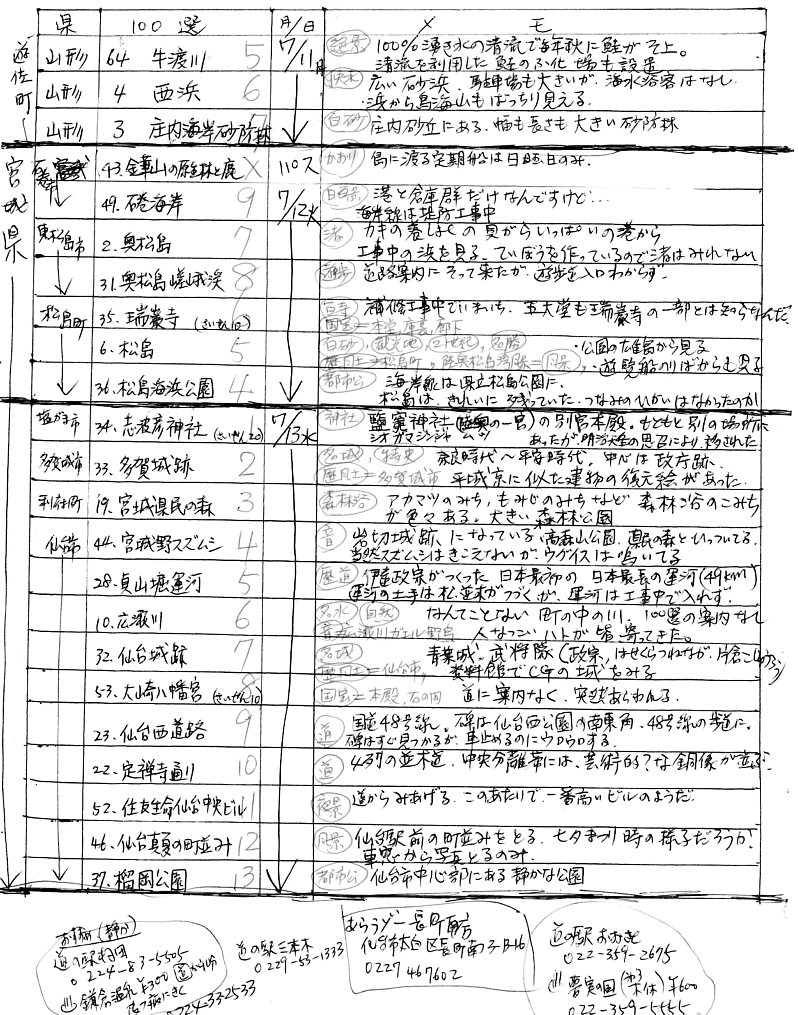 県 100選 月/日 メモ
遊佐町
山形 64 牛渡川 5 7/11月 100%湧き水の清流で毎年秋に鮭がそ上。
清流を利用した鮭のふ化場も設置
山形 4 西浜 6 快水 広い砂浜、駐車場も大きいが、海水浴客はなし
浜から鳥海山もばっちり見える。
山形 3 庄内海岸砂防林 白砂 庄内砂丘にある、幅も長さも大きい砂防林
宮城県
43.金華山の原生林と鹿 X 110ス かおり 島に渡る定期船は日のみ。
49. 海岸 9 7/12火 港と倉庫群だけなんですけど…
海岸線は堤防工事中
奥松島市 2.奥松島 7 渚 カキの養しょくの貝がらいっぱいの港から
工事中の浜を見る。ていぼうを作っているので渚はみれない
31.奥松島嵯峨渓 8 遊歩 道路案内にそって来たが、遊歩道入口わからず。
松島町 35.瑞巌寺 (さいせん10) 6 補修工事中でいまいち、五大堂も瑞巌寺の一部とは知らなんだ
国宝=本堂、庫裏、廊下
6.松島 5 白砂,観光地,21世紀,名勝 ・公園の雄島から見る
歴風土=松島町, ・遊覧船のりばからも見る
36.松島海浜公園 4 都市公 海岸線は県立松島公園に。
松島は、きれいに残っていた。つなみのひがいはなかったのか
塩がま市 34.志波彦神社 (さいせん20) 7/13水 神社 鹽竈神社(陸奥の一宮)の別宮本殿。もともと別の場所に
シオガマジンジャ あったが、明治天皇の思召により、移された
多賀城市 33.多賀城跡 2 名城,特史 奈良時代〜平安時代。中心は政庁跡。
歴風土=多賀城市 平城京に似た建物の復元絵があった。
利府町 19.宮城県民の森 3 森林浴 アカマツのみち,もみじのみちなど 森林浴のこみち
が色々ある。大きい森林公園
仙台市 44.宮城野スズムシ 4 音 岩切城跡、になっている 高森山公園、県民の森といっている。
当然スズムシはきこえないが、ウグイスは鳴いてる
28.貞山堀運河 5 歴道 伊達政宗がつくった日本最初の日本最長の運河(49km)
運河の土手は松並木がつづくが、運河は工事中で入れず.
10.広瀬川 6 名水 自然 なんてことない町の中の川、100選の案内なし
音=広瀬川カエル野鳥 人なつこいハトが皆寄ってきた。
32.仙台城跡 7 名城 青葉城。武将隊(政宗,はせくらつねなが,片倉こじゅうろう)
歴風土=仙台市, 資料館でCGの城をみる
53.大崎八幡宮 (さいせん10) 8 国宝=本殿,石の間 道に案内なく、突然あらわれる.
23.仙台西道路 9 道 国道48号線。碑は仙台西公園の南東角、48号線の歩道に。
碑はすぐ見つかるが、車止めるのにウロウロする。
22.定禅寺通り 10 道 4列の並木道、中央分離帯には、芸術的?な銅像が並ぶ.
52.住友生命仙台中央ビル 11 夜景 道からみあげる、このあたりで、一番高いビルのようだ.
46.仙台真夏の町並み 12 風景 仙台駅前の町並みをとる、七夕まつり時の様子だろうか?
車窓から写真とるのみ.
37.榴岡公園 13 都市公 仙台市中心部にある静かな公園
道の駅村田
0224-83-5505
鎌倉温泉 ¥300
0224-33-2533
道の駅三本木
0229-53-1333
むらうぞー長町南店
仙台市太白区長町南3-13-16
0227467602
道の駅おおさと
022-359-2675
夢実の国 ¥600
022-359-5555